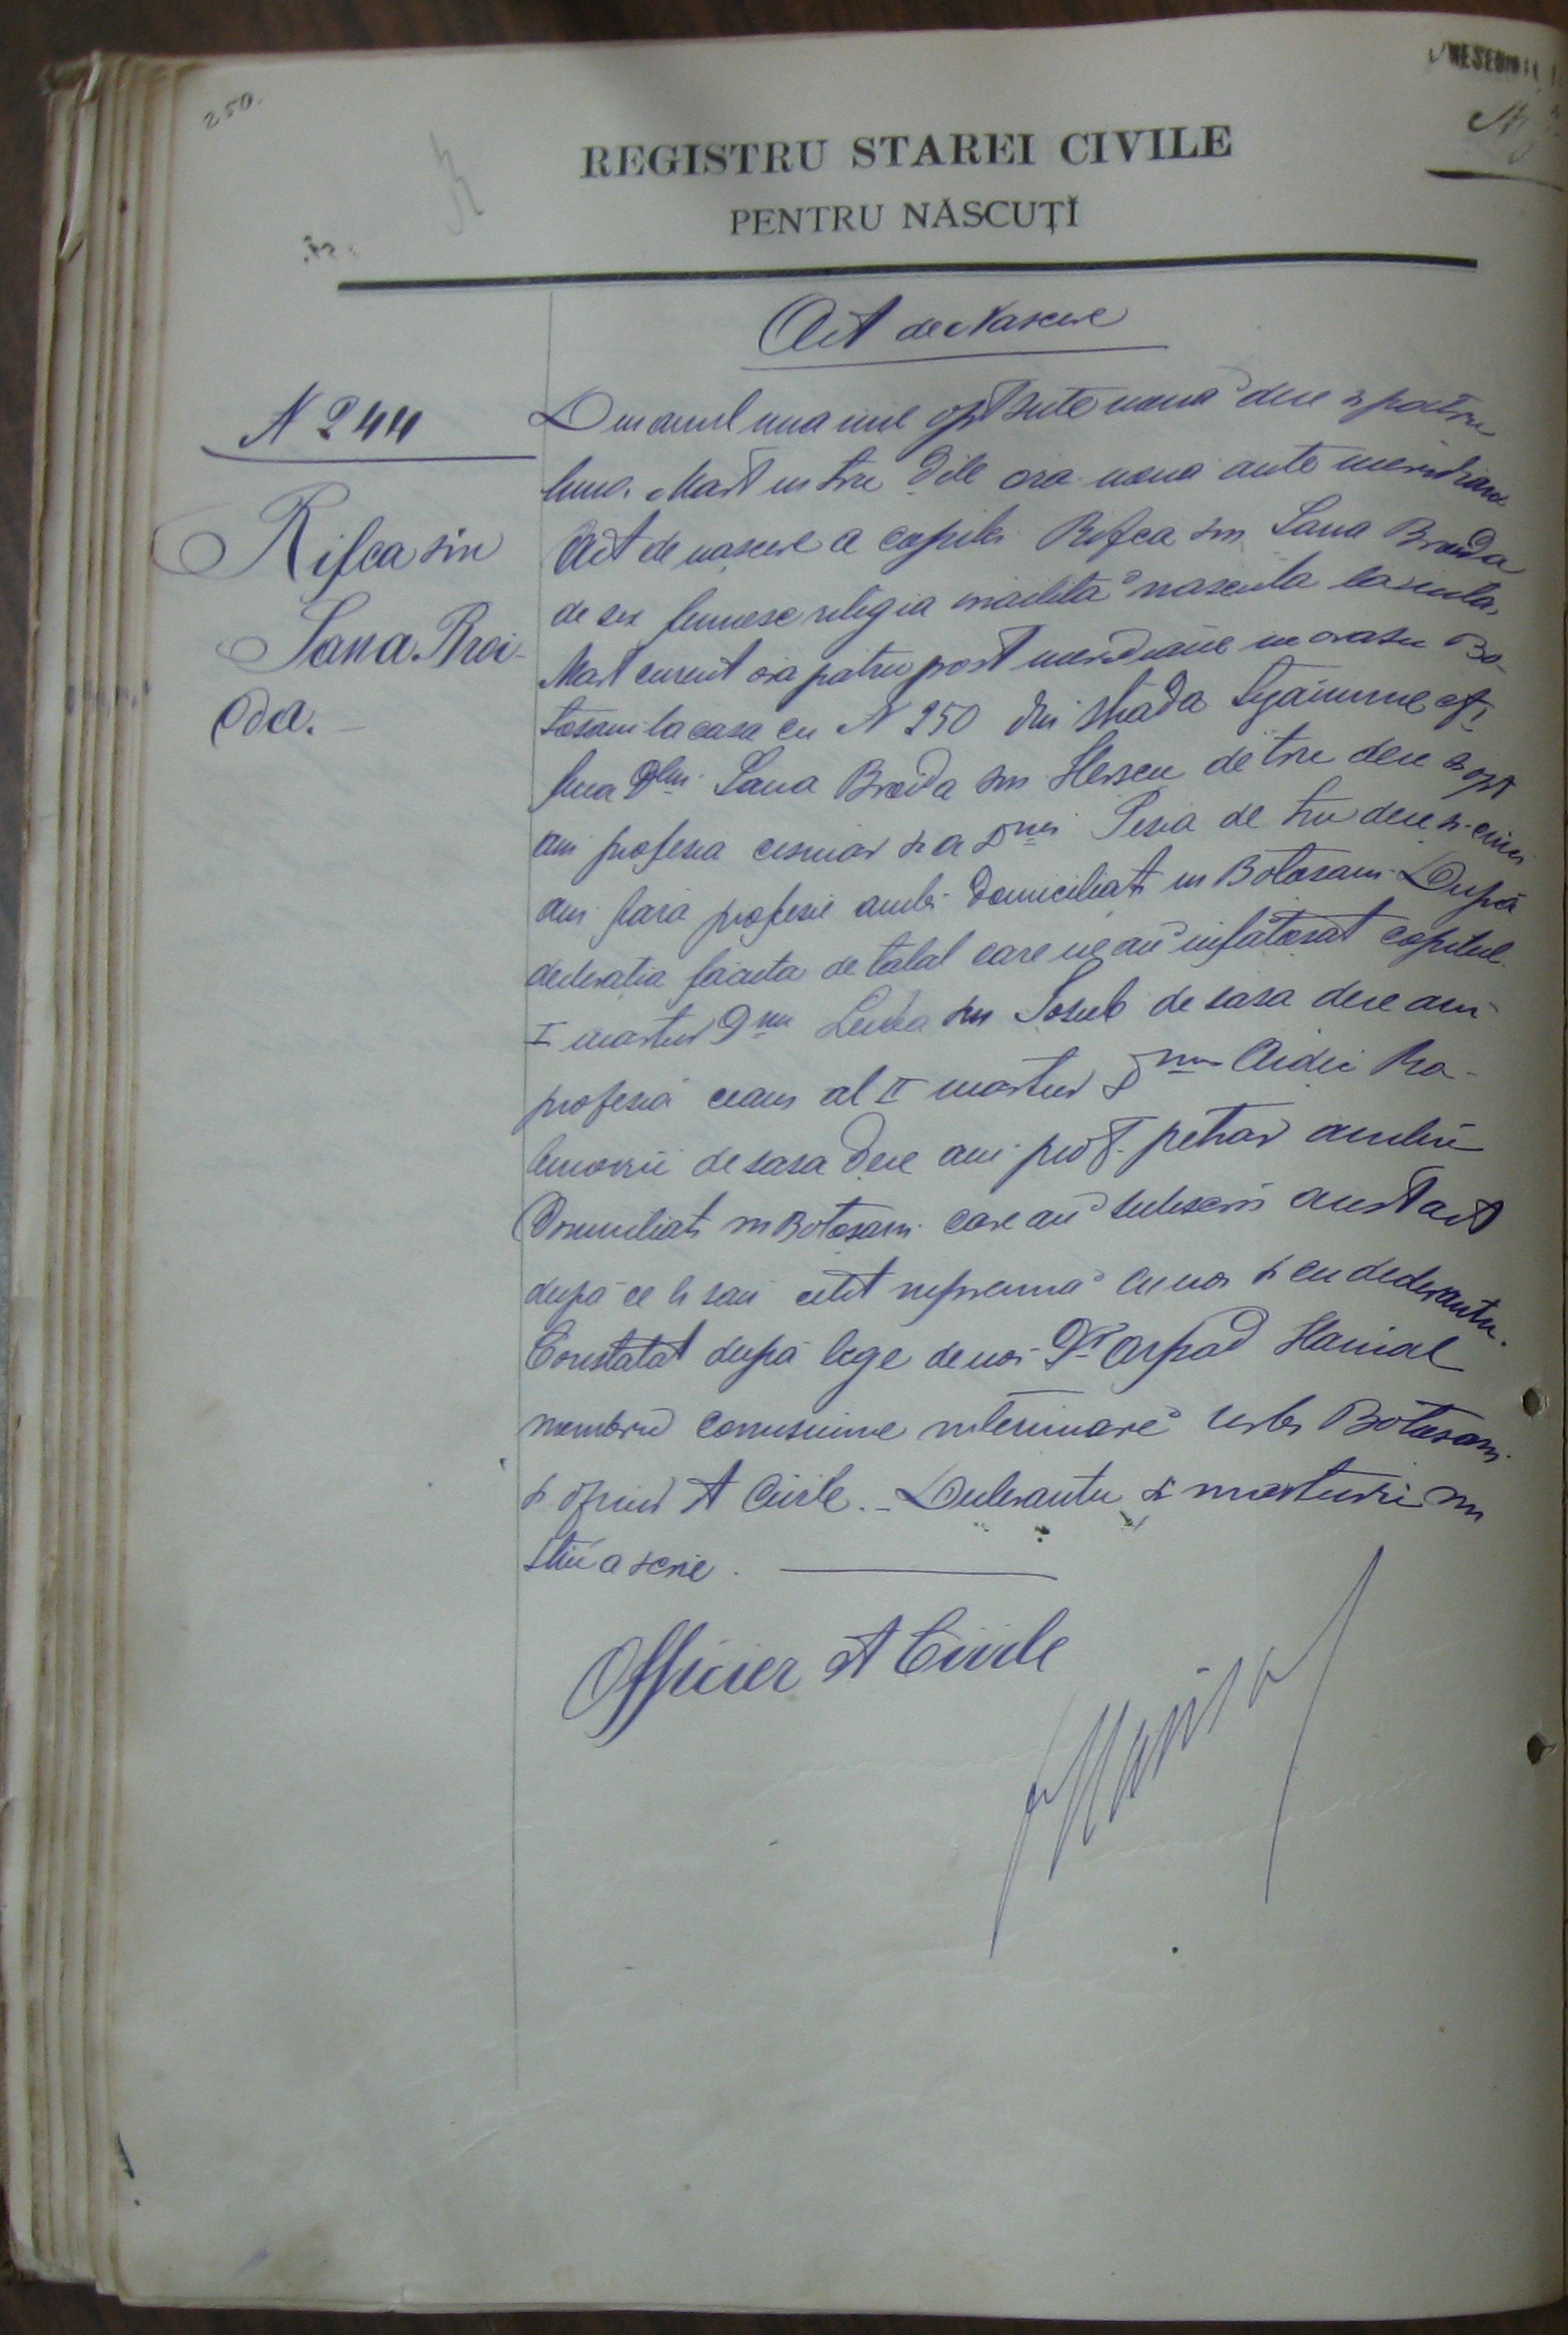 250.
REGISTRU STAREI CIVILE
PENTRU NĂSCUȚĬ
Act de Nascere
N 244
Rifca sin
Sana. Broi-
da.
Din anul una mie opt sute noua deci si patru
luna. Mart in trei dile ora noua ante meridiane
Act de nascere a copilei Rifca sin Sana Broida
de sex femeesc religia nascuta la
Mart curent ora patru post meridiane in orasu Bo-
tosani la casa cu N 250 din strada
fiica Dlui Sana Broida sin Herscu de trei deci si opt
ani profesia cismar si a Dnei Pesia de trei deci si cinci
ani fara profesie ambi domiciliati in Botosani. Dupa
declaratia facuta de tatal care ne au infatosat copilul.
I martur Dnu Leiba sin Iosub de sasa deci ani
profesia al II martur Dnu
de sasa deci ani prof. petrar ambii
Domiciliati in Botosani care au subscris acest act
dupa ce li sau citit inpreuna cu noi si cu declarantu.
Constatat dupa lege de noi Dr Arpad Hainal
membru comisiune interimare urbei Botosani.
si oficier St Civile. _ Declarantu si marturii nu
stiu a scrie.
Officier St Civile